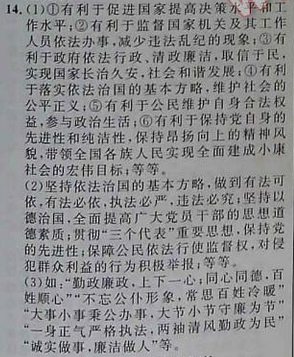 14.(1)①有利于促进国家提高决策水平和工
作水平;②有利于监督国家机关及其工作
人员依法办事,减少违法乱纪的现象;③有
利于政府依法行政、清政廉洁,取信于民,
实现国家长治久安,社会和谐发展;④有利
于落实依法治国的基本方略,维护社会的
公平正义;⑤有利于公民维护自身合法权
益,参与政治生活;⑥有利于保持党自身的
先进性和纯洁性,保持昂扬向上的精神风
貌,带领全国各族人民实现全面建成小康
社会的宏伟目标;等等。
(2)坚持依法治国的基本方略,做到有法可
依,有法必依,执法必严,违法必究;坚持以
德治国,全面提高广大党员干部的思想道
德素质;贯彻“三个代表”重要思想,保持党
的先进性;保障公民依法行使监督权,对侵
犯群众利益的行为积极举报;等等。
(3)如:“勤政廉政,上下一心;同心同德,百
姓顺心”“不忘公仆形象,常思百姓冷暖”
“大事小事秉公办事,大节小节守廉为节”
“一身正气严格执法,两袖清风勤政为民”
“诚实做事,廉洁做人”等。